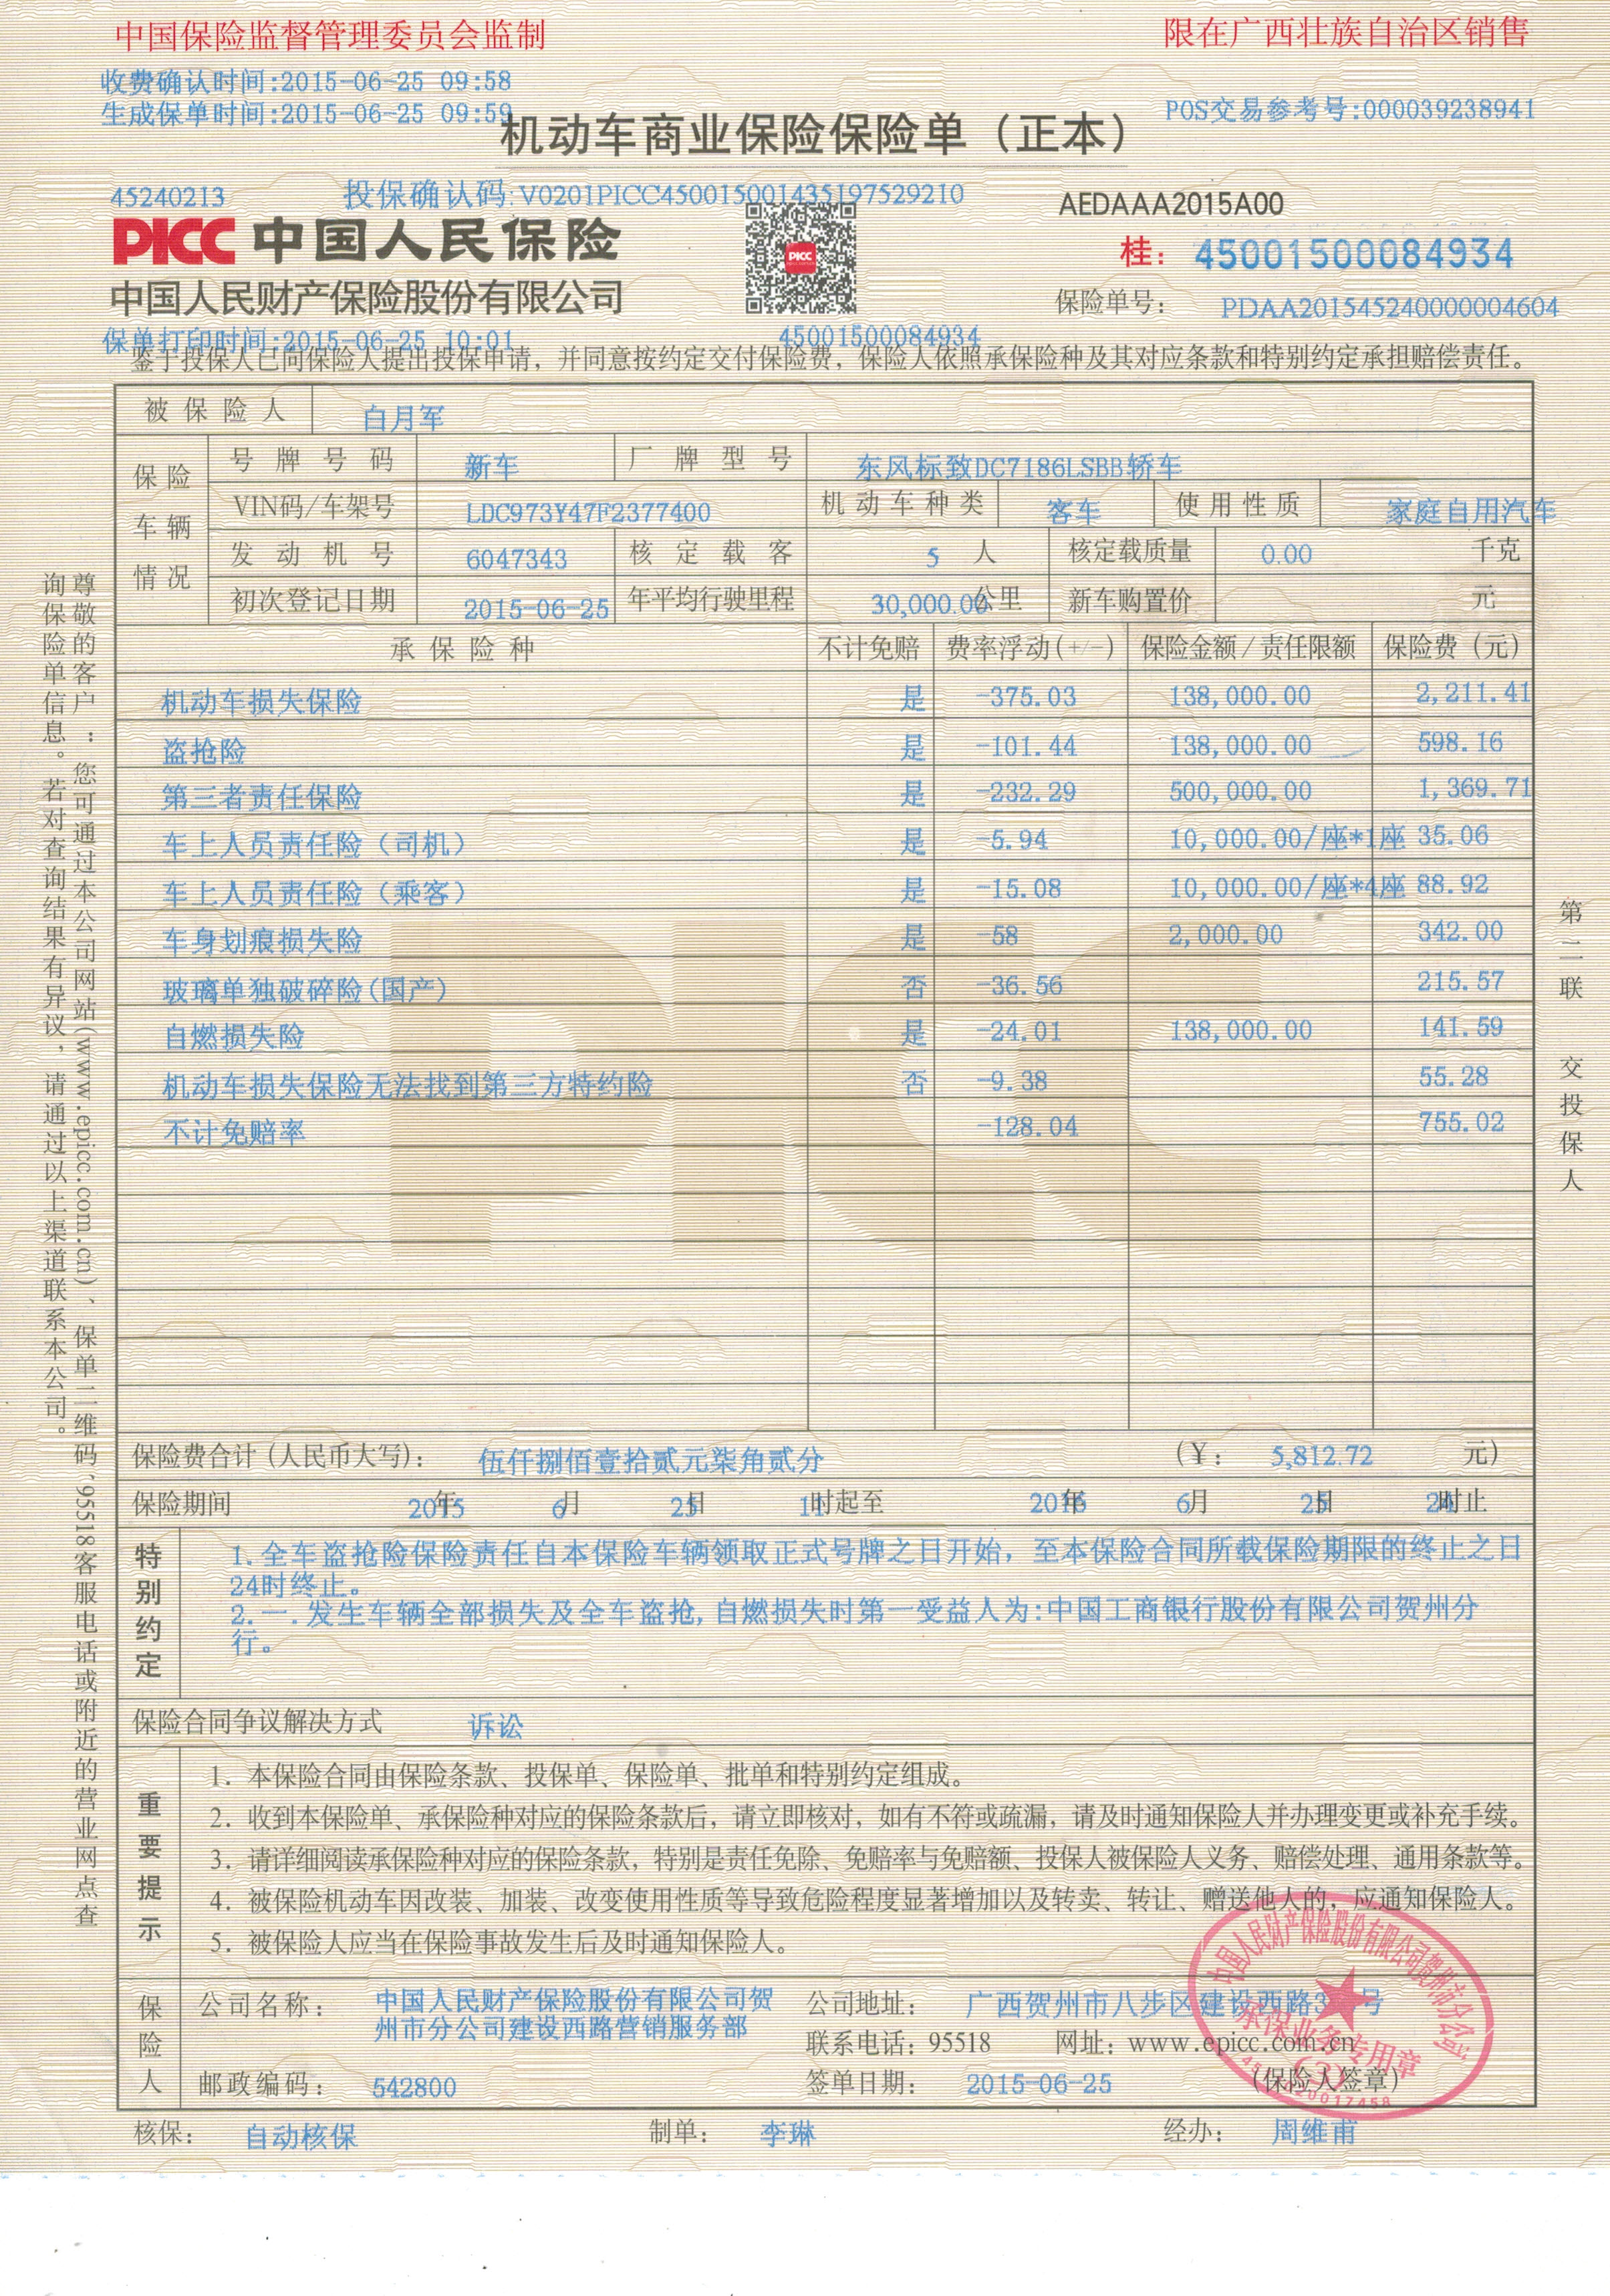 中国保险监督管理委员会监制
限在广西壮族自治区销售
收费确认时间:2015-06-25 09:58
生成保单时间:2015-06-25 09:59
POS交易参考号:000039238941
机动车商业保险保险单（正本）
45240213
投保确认码:V0201PICC450015001435197529210
AEDAAA2015A00
PICC 中国人民保险
PICC
桂： 45001500084934
中国人民财产保险股份有限公司
保险单号： PDAA201545240000004604
保单打印时间:2015-06-25 10:01
45001500084934
鉴于投保人已向保险人提出投保申请，并同意按约定交付保险费，保险人依照承保险种及其对应条款和特别约定承担赔偿责任。
被保险人 白月军
保险车辆情况
号牌号码 新车 厂牌型号 东风标致DC7186LSBB轿车
VIN码/车架号 LDC973Y47F2377400 机动车种类 客车 使用性质 家庭自用汽车
发动机号 6047343 核定载客 5 人 核定载质量 0.00 千克
初次登记日期 2015-06-25 年平均行驶里程 30,000.00公里 新车购置价 元
承保险种 不计免赔 费率浮动(+/-) 保险金额/责任限额 保险费（元）
机动车损失保险 是 -375.03 138,000.00 2,211.41
盗抢险 是 -101.44 138,000.00 598.16
第三者责任保险 是 -232.29 500,000.00 1,369.71
车上人员责任险（司机） 是 -5.94 10,000.00/座*1座 35.06
车上人员责任险（乘客） 是 -15.08 10,000.00/座*4座 88.92
车身划痕损失险 是 -58 2,000.00 342.00
玻璃单独破碎险(国产) 否 -36.56 215.57
自燃损失险 是 -24.01 138,000.00 141.59
机动车损失保险无法找到第三方特约险 否 -9.38 55.28
不计免赔率 -128.04 755.02
保险费合计（人民币大写）： 伍仟捌佰壹拾贰元柒角贰分 （¥： 5,812.72 元）
保险期间 2015年 6月 25日 11时起至 2016年 6月 25日 24时止
特别约定
1.全车盗抢险保险责任自本保险车辆领取正式号牌之日开始，至本保险合同所载保险期限的终止之日
24时终止。
2.一.发生车辆全部损失及全车盗抢,自燃损失时第一受益人为:中国工商银行股份有限公司贺州分
行。
保险合同争议解决方式 诉讼
重要提示
1．本保险合同由保险条款、投保单、保险单、批单和特别约定组成。
2．收到本保险单、承保险种对应的保险条款后，请立即核对，如有不符或疏漏，请及时通知保险人并办理变更或补充手续。
3．请详细阅读承保险种对应的保险条款，特别是责任免除、免赔率与免赔额、投保人被保险人义务、赔偿处理、通用条款等。
4．被保险机动车因改装、加装、改变使用性质等导致危险程度显著增加以及转卖、转让、赠送他人的，应通知保险人。
5．被保险人应当在保险事故发生后及时通知保险人。
保险人
公司名称： 中国人民财产保险股份有限公司贺
州市分公司建设西路营销服务部
公司地址： 广西贺州市八步区建设西路 号
联系电话：95518 网址：www.epicc.com.cn
邮政编码： 542800
签单日期： 2015-06-25
（保险人签章）
中国人民财产保险股份有限公司贺州市分公司
承保业务专用章
(3)
核保： 自动核保 制单： 李琳 经办： 周维甫
尊敬的客户：您可通过本公司网站(www.epicc.com.cn)、保单二维码、95518客服电话或附近的营业网点查
询保险单信息。若对查询结果有异议，请通过以上渠道联系本公司。
第二联 交投保人
PICC